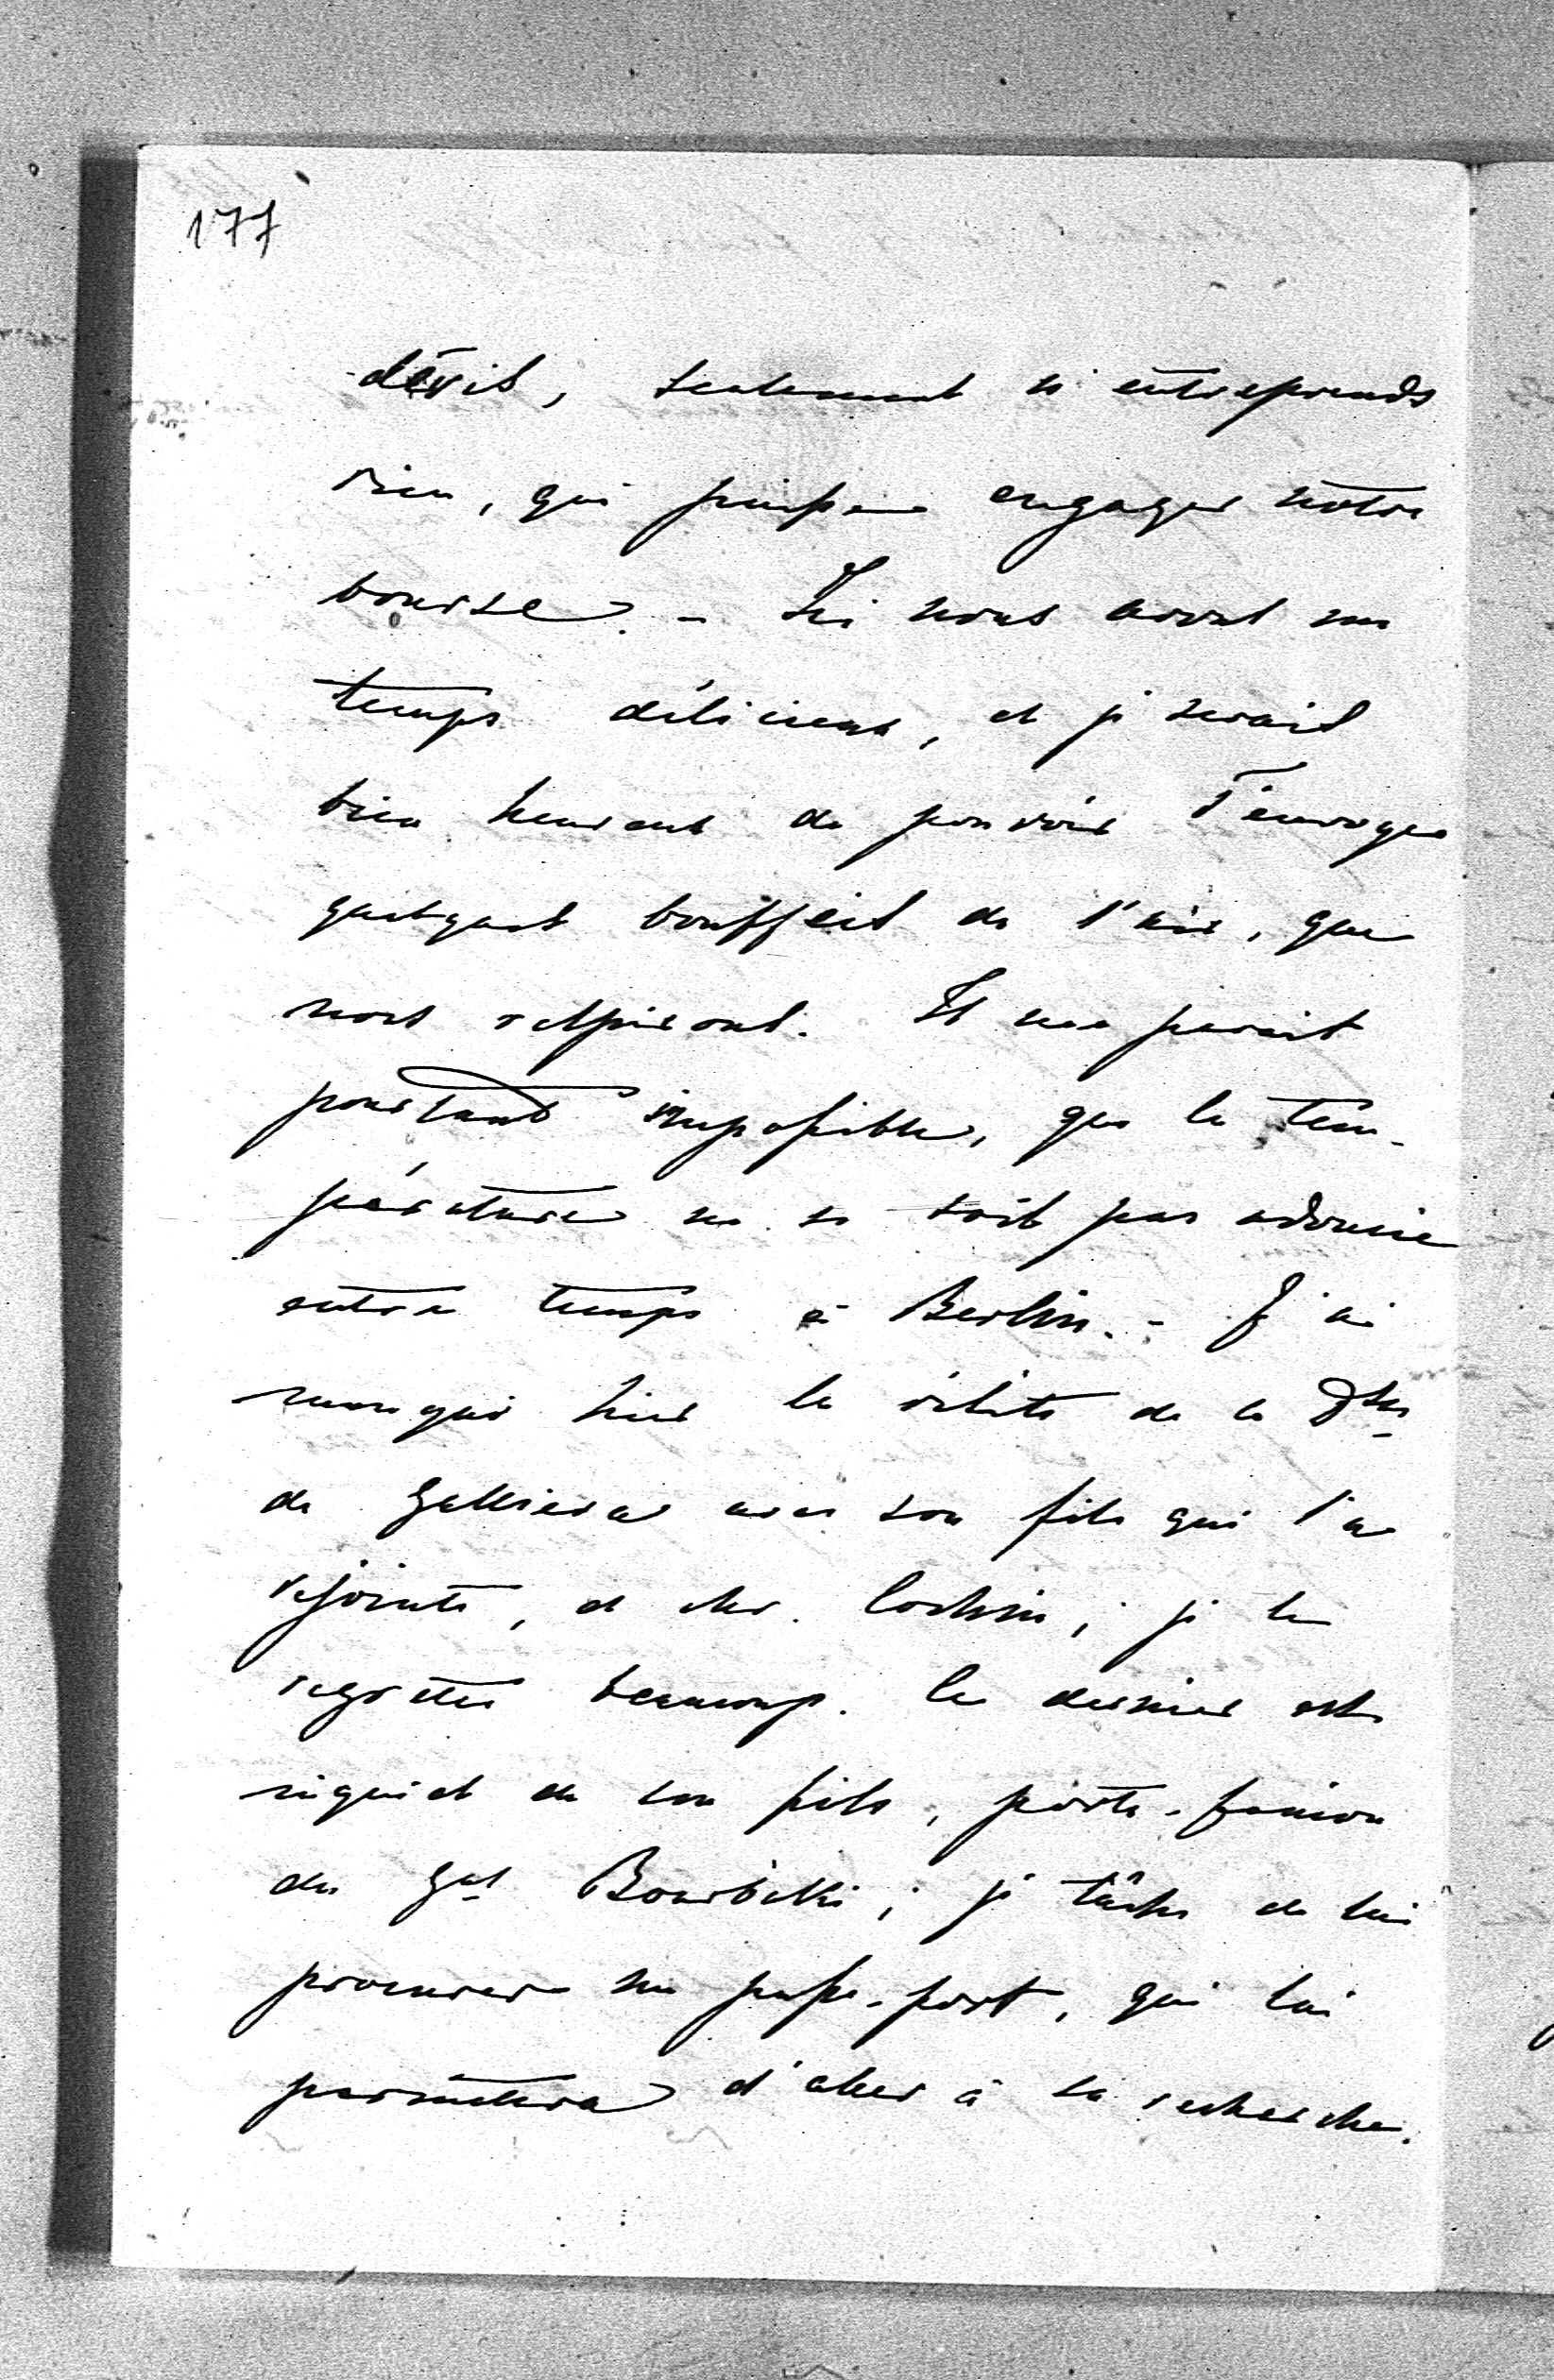 177
désir, seulement n'entreprends
rien, qui puisse engager notre
bourse. - Ici nous avons un
temps délicieux, et je serais
bien heureux de pouvoir t'envoyer
quelques bouffées de l'air, que
nous respirons. Il me parait
pourtant impossible, que la tem-
pérature ne se soit pas adoucie
entre temps à Berlin. - J'ai
manqué hier la visite de la Dsse
de Galliera avec son fils qui l'a
rejointe, et de Cochin; je le
regrette beaucoup. Ce dernier est
inquiet de son fils, porte-fanion
du Gal Bourbaki; je tâche de lui
procurer un passe-port, qui lui
permettra d'aller à sa recherche.